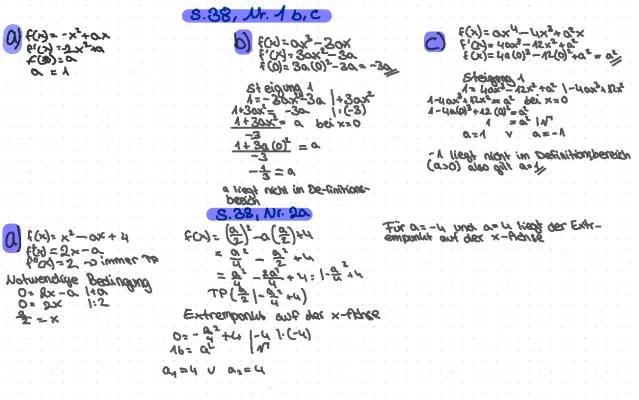 S.38, Nr. 1 b, c
a) f(x) = -x² + ax
f'(x) = -2x + a
f'(0) = a
a = 1
b) f(x) = ax³ - 3ax
f'(x) = 3ax² - 3a
f'(0) = 3a(0)² - 3a = -3a
Steigung 1
1 = -3ax² - 3a | + 3ax²
1 + 3ax² = -3a | : (-3)
1 + 3ax² / -3 = a bei x = 0
1 + 3a(0)² / -3 = a
-1/3 = a
a liegt nicht im Definitions-
bereich
c) f(x) = ax⁴ - 4x³ + a²x
f'(x) = 4ax³ - 12x² + a²
f(x) = 4a(0)³ - 12(0)² + a² = a²
Steigung 1
1 = 4ax³ - 12x² + a² | - 4ax³ + 12x²
1 - 4ax³ + 12x² = a² bei x = 0
1 - 4a(0)³ + 12(0)² = a²
1 = a² | √
a = 1 v a = -1
-1 liegt nicht im Definitionsbereich
(a>0) also gilt a = 1
S.38, Nr. 2a
a) f(x) = x² - ax + 4
f'(x) = 2x - a
f''(x) = 2 → immer TP
Notwendige Bedingung
0 = 2x - a | + a
a = 2x | : 2
a/2 = x
f(x) = (a/2)² - a(a/2) + 4
= a²/4 - a²/2 + 4
= a²/4 - 2a²/4 + 4 = | -a²/4 + 4
TP (a/2 | -a²/4 + 4)
Extrempunkt auf der x-Achse
0 = -a²/4 + 4 | -4 | · (-4)
16 = a² | √
a₁ = 4 v a₂ = 4
Für a = -4 und a = 4 liegt der Extr-
empunkt auf der x-Achse